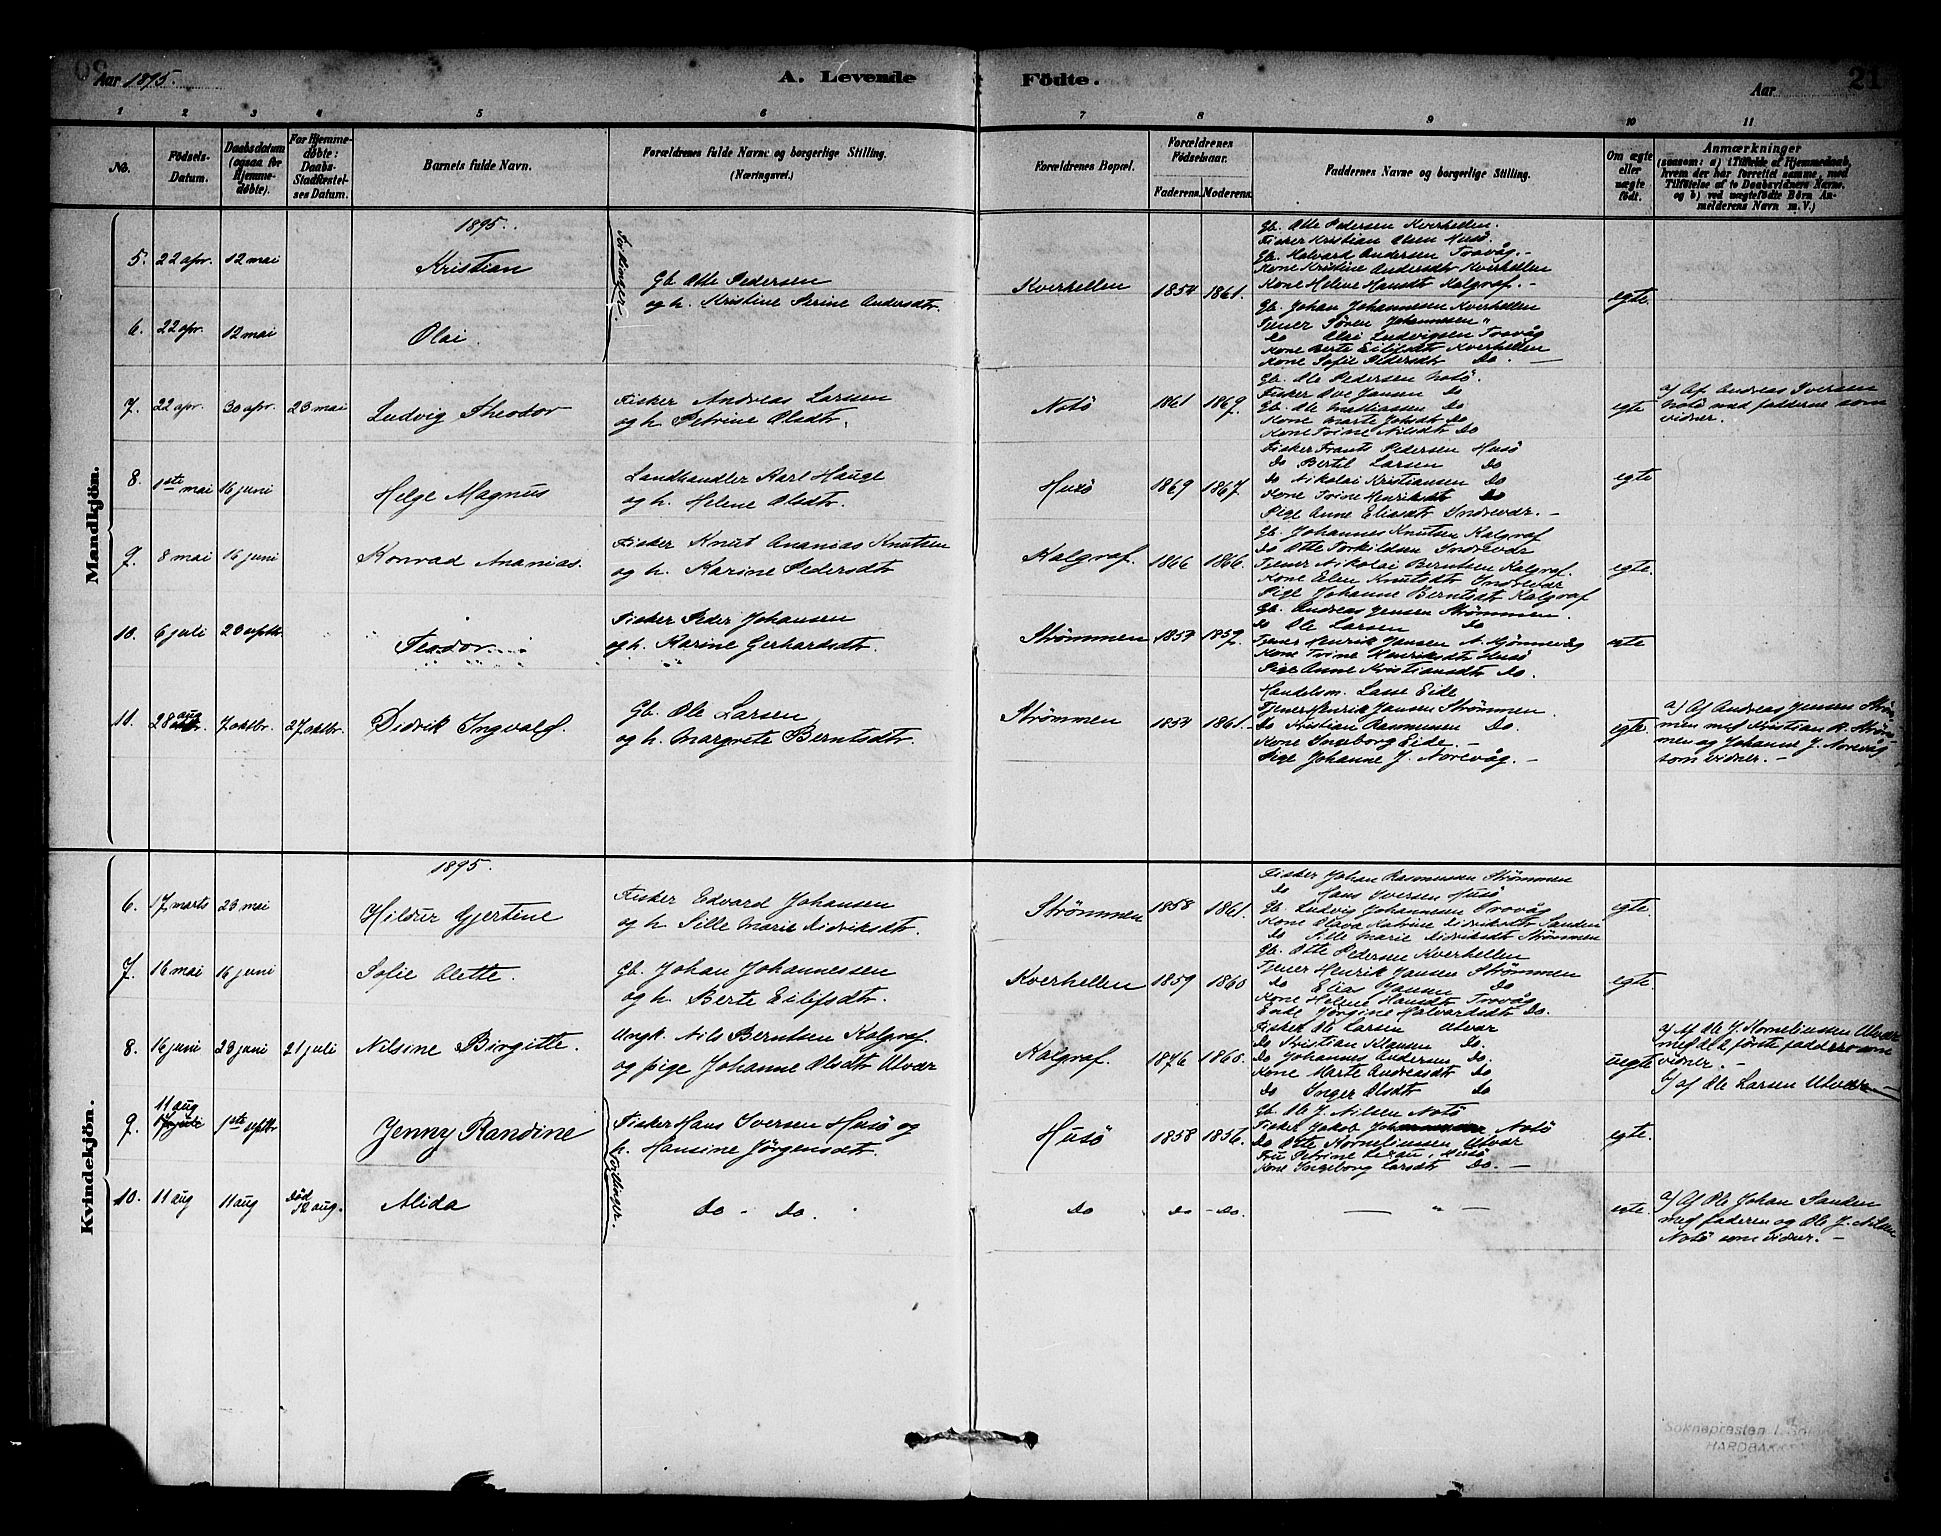 Aar 1895.
A. Levende Födte.
Aar
21
1 2 3 4 5 6 7 8 9 10 11
No.
Födsels-Datum.
Daabsdatum (ogsaa for Hjemme-døbte).
For Hjemme-døbte: Daabs-Stadfæstel-ses Datum.
Barnets fulde Navn.
Forældrenes fulde Navne og borgerlige Stilling. (Næringsvei.)
Forældrenes Bopæl.
Forældrenes Födselsaar.
Faderens. Moderens.
Faddernes Navne og borgerlige Stilling.
Om ægte eller uægte født.
Anmærkninger
(saasom: a) i Tilfælde af Hjemmedaab, hvem der har forrettet samme, med Tilföielse af to Daabsvidners Navne, og b) ved uægtefödte Börn An-melderens Navn m.V.)
Mandkjön.
1895.
5. 22 apr. 12 mai Kristian
Tvillinger.
Gb. Otte Pedersen
og h. Kristine Serine Andersdtr.
Kverhellen 1854 1861. egte.
Gb. Otte Pedersen Kverhellen.
Fisker Kristian Olsen Husö.
Gb. Halvard Andersen Trovåg.-
Kone Kristine Andersdtr Kverhellen
Kone Helene Hansdtr Kalgraf.-
6. 22 apr. 12 mai Olai.
Gb. Johan Johannesen Kverhellen
Tjener Sören Johannesen "
do Olai Ludvigsen Trovåg
Kone Berte Eilifsdtr Kverhellen
Kone Sofie Pedersdtr Do.
7. 22 apr. 30 apr. 23 mai Ludvig Theodor
Fisker Andreas Larsen
og h. Petrine Olsdtr.
Notö 1861 1867. egte
Gb. Ole Pedersen Notö.
Fisker Ove Jansen Do
Gb. Ole Mathiassen Do
Kone Marte Johsdtr Do
Kone Trine Nilsdtr Do
a) Af Andreas Iversen
Notö med fadderne som
vidner.
8. 1ste mai 16 juni Helge Magnus
Landhandler Karl Hauge
og h. Helene Olsdtr.
Husö 1869 1867. egte
Fisker Frants Pedersen Husö
Do Bertil Larsen Do
do Nikolai Kristiansen Do
Kone Trine Henriksdtr Do
Pige Anne Eliasdtr Indrevær.-
9. 8 mai 16 juni Konrad Ananias.
Fisker Knut Ananias Knutsen
og h. Karine Pedersdtr
Kalgraf. 1866 1866. egte.
Gb. Johannes Knutsen Kalgraf
do Otte Torkildsen Indrevær
Tjener Nikolai Berntsen Kalgraf.
Kone Elen Knutsdtr Indrevær
Pige Johanne Berntsdtr Kalgraf
10. 6 juli 23 septbr. Teodor
Fisker Peder Johansen
og h. Karine Gerhardsdtr.
Strömmen 1853 1857. egte
Gb. Andreas Jensen Strömmen.
do Ole Larsen do
Tjener Henrik Jansen N. Hjönnevåg
Kone Trine Henriksdtr Husö
Pige Anne Kristiansdtr do.
11. 28 aug 7 oktbr. 27 oktbr. Didrik Ingvald.
Gb. Ole Larsen
og h. Margrete Berntsdtr.
Strömmen 1853 1861. egte.
Handelsm. Lasse Eide
Tjener Henrik Jansen Strömmen.
do Kristian Rasmussen Do.
Kone Ingeborg Eide.-
Pige Johanne J. Norevåg.-
a) Af Andreas Jensen Ström-
men med Kristian R. Ström-
men og Johanne J. Norevåg
som vidner.-
Kvindekjön.
1895.
6. 17 marts 23 mai Hildur Gjertine
Fisker Edvard Johansen
og h. Sille Marie Didriksdtr.
Strömmen 1858 1861. egte.
Fisker Johan Rasmussen Strömmen
do Hans Iversen Husö
Gb. Ludvig Johannesen Trovåg
Kone Olava Katrine Didriksdtr Sanden
do Sille Marie Didriksdtr Strömmen
7. 16 mai 16 juni Sofie Olette.
Gb. Johan Johannessen
og h. Berte Eilifsdtr.
Kverhellen 1859 1860 egte.
Gb. Otte Pedersen Kverhellen
Tjener Henrik Jansen Strömmen
do Elias Jansen Do
Kone Helene Hansdtr Trovåg
Enke Jörgine Halvardsdtr Do.
8. 16 juni 23 juni 21 juli Nilsine Birgitte.
Ungk. Nils Berntsen Kalgraf.
og pige Johanne Olsdtr Utvær
Kalgraf. 1876 1865. uegte
Fisker Ole Larsen Utvær
do Kristian Klausen do.
do Johannes Andersen do.
Kone Marte Andreasdtr do
do Inger Olsdtr do
a) Af Ole J. Korneliussen Utvær
med de 2 første faddere som
vidner.-
b) af Ole Larsen Utvær-
9. 11 aug 1ste septbr Jenny Randine
Tvillinger.
Fisker Hans Iversen Husö og
h. Hansine Jörgensdtr.
Husö 1858 1856. egte.
Gb. Ole J. Nilsen Notö
Fisker Jakob Notö
Do Otte Korneliussen Utvær
Fru Petrine , Husö
Kone Ingeborg Larsdtr Do.-
10. 11 aug 11 aug død 12 aug. Alida
do - do.
do do - do. — " — egte.
a) Af Ole Johan Sanden
med faderen og Ole J. Nilsen
Notö som vidner.-
Soknepresten i
HARDBAKKE